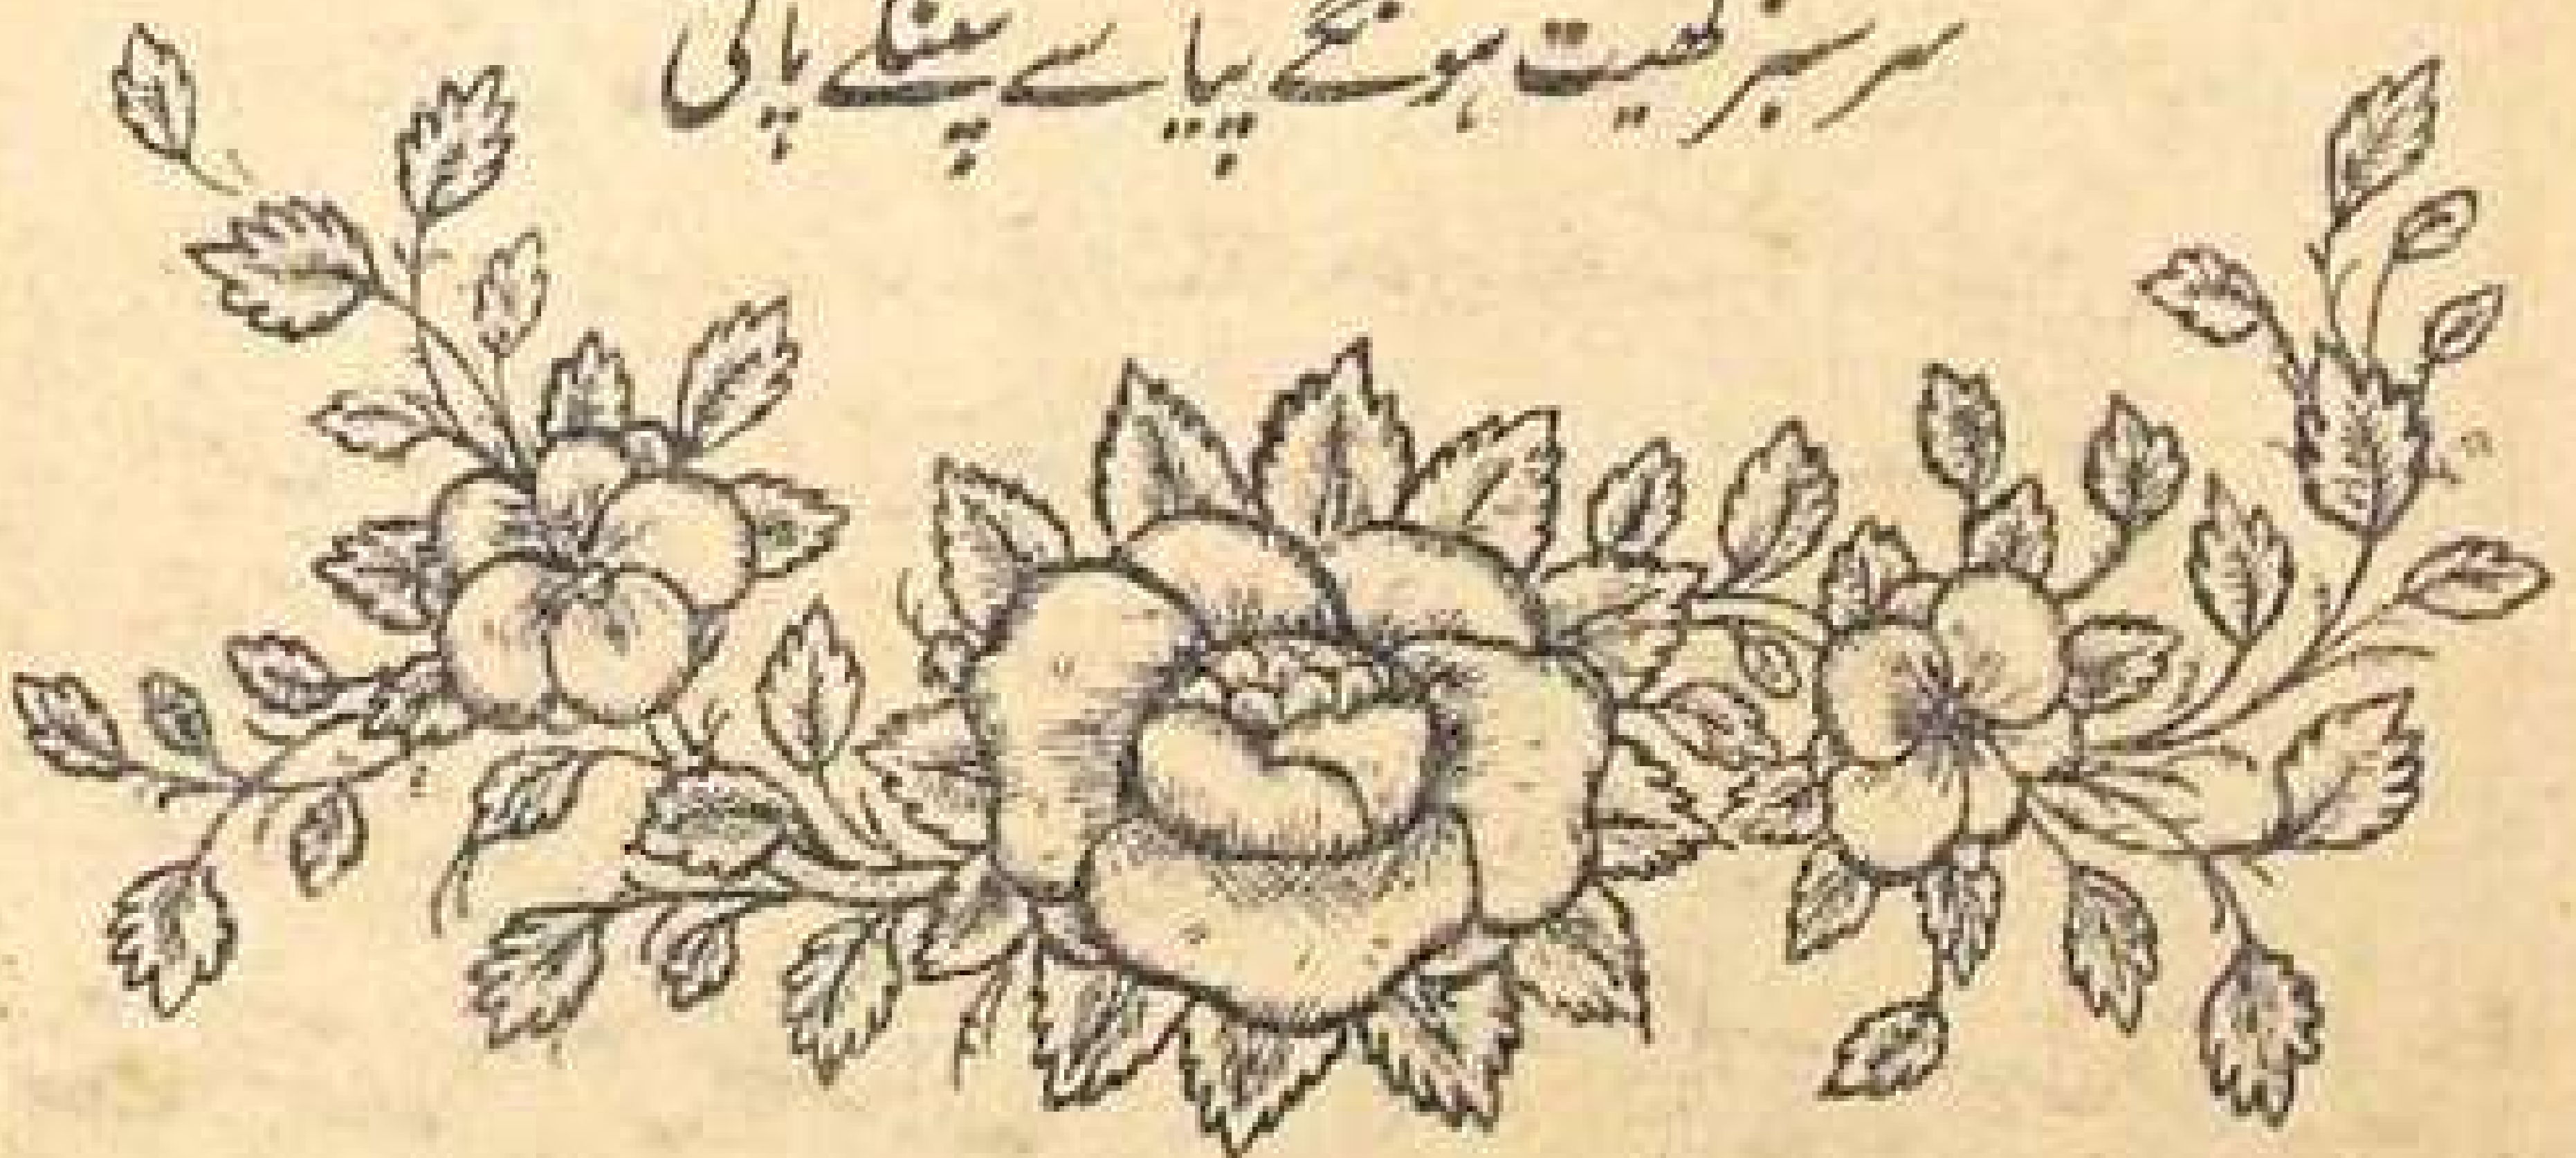 سرسبز کھیت ہونگے پیاسے پئینگے پانی